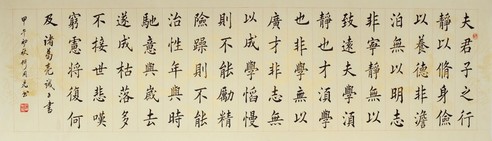 夫君子之行
靜以脩身儉
以養德非澹
泊無以明志
非寧靜無以
致遠夫學須
靜也才須學
也非學無以
廣才非志無
以成學慆慢
則不能勵精
險躁則不能
治性年與時
馳意與歲去
遂成枯落多
不接世悲嘆
窮廬將復何
及 諸葛亮誡子書
甲午